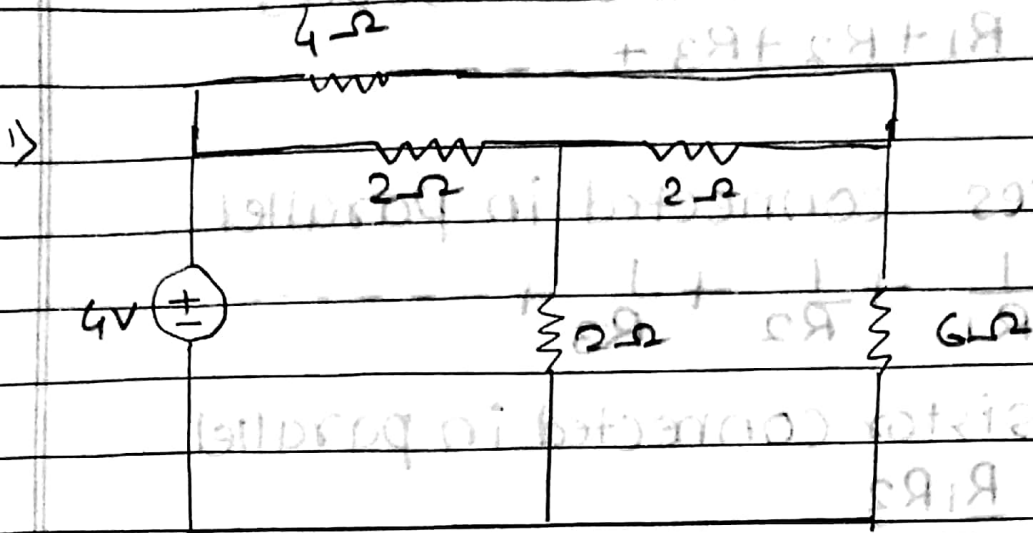 4Ω
1)
2Ω 2Ω
4V + - 2Ω 6Ω